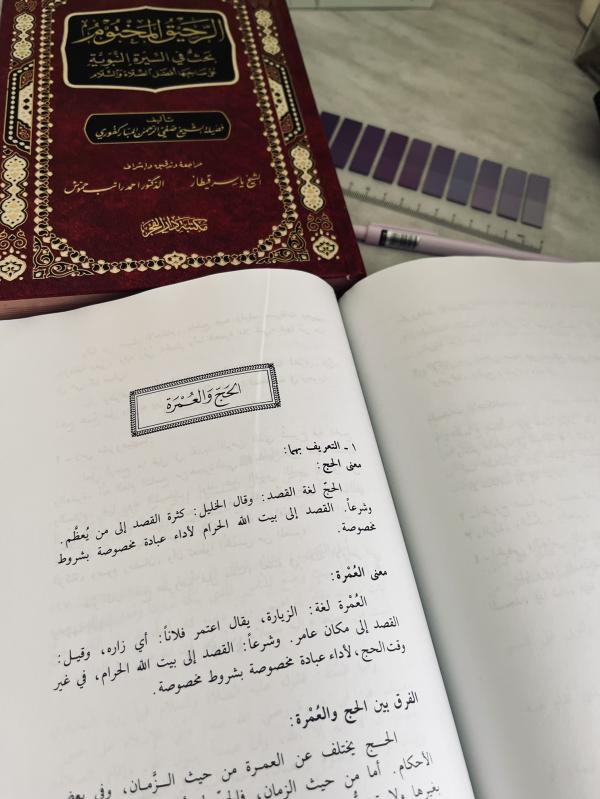 الرحيق المختوم
بحث في السيرة النبوية
على صاحبها أفضل الصلاة والسلام
تأليف
فضيلة الشيخ صفي الرحمن المباركفوري
مراجعة وتدقيق وإشراف
الشيخ ياسر قيطاز الدكتور أحمد راتب حموش
مكتبة دار الفجر
الحَجّ وَالعُـمْرَة
١ ـ التعريف بهما:
معنى الحج:
الحجّ لغة القصد: وقال الخليل: كثرة القصد إلى من يُعظَّم.
وشرعاً: القصد إلى بيت الله الحرام لأداء عبادة مخصوصة بشروط
مخصوصة.
معنى العُمْرة:
العُمْرة لغة: الزيارة، يقال اعتمر فلاناً: أي زاره، وقيـل:
القصد إلى مكان عامر. وشرعاً: القصد إلى بيت الله الحرام، في غير
وقت الحج، لأداء عبادة مخصوصة بشروط مخصوصة.
الفرق بين الحج والعُمْرة:
الحـــج يختلف عن العمـرة من حيث الـزَّمـان، وفي بعض
الأحكام. أما من حيث الزمان، فالحج
بغيرها